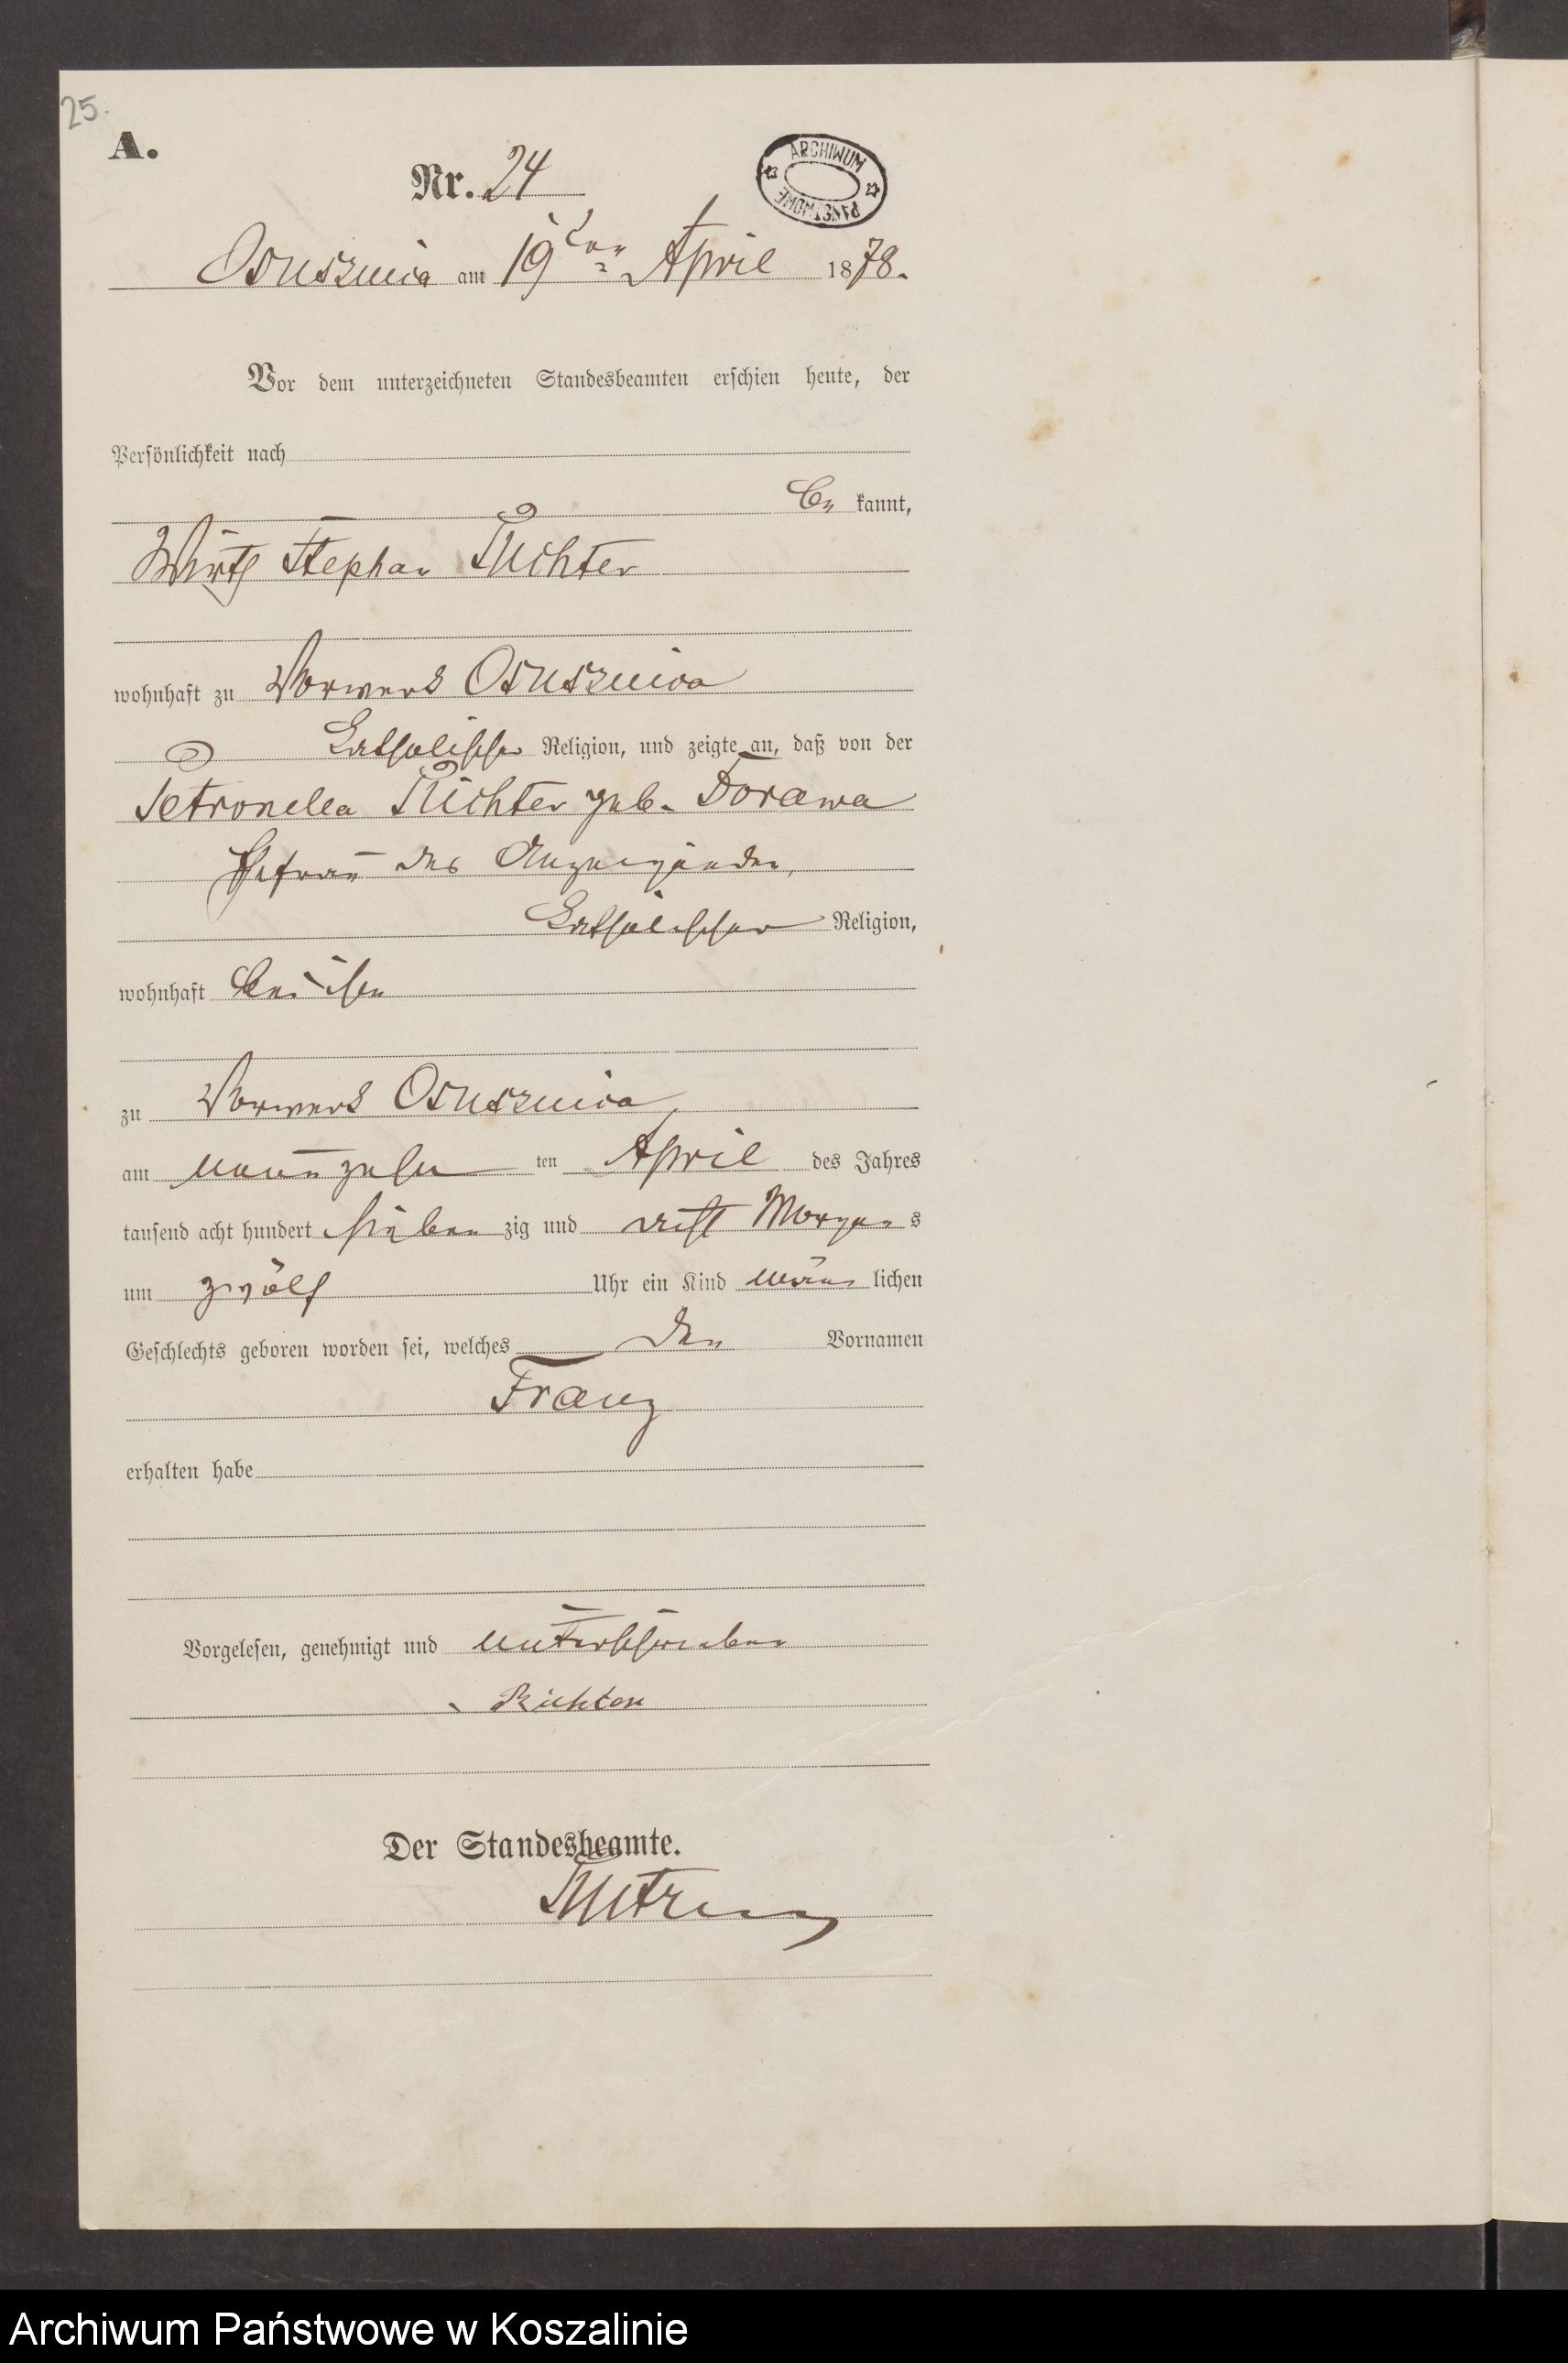 25.
A.
Nr. 24
ARCHIWUM PAŃSTWOWE
Osusznica am 19ten April 1878.
Vor dem unterzeichneten Standesbeamten erschien heute, der
Persönlichkeit nach
be kannt,
Wirth Stephan Richter
wohnhaft zu Vorwerk Osusznica
katholischer Religion, und zeigte an, daß von der
Petronella Richter geb. Dorawa
Ehefrau des Anzeigenden,
katholischer Religion,
wohnhaft bei ihm
zu Vorwerk Osusznica,
am neunzehn ten April des Jahres
tausend acht hundert sieben zig und acht Morgen s
um zwölf Uhr ein Kind männ lichen
Geschlechts geboren worden sei, welches den Vornamen
Franz
erhalten habe
Vorgelesen, genehmigt und unterschrieben
Richter
Der Standesbeamte.
Archiwum Państwowe w Koszalinie